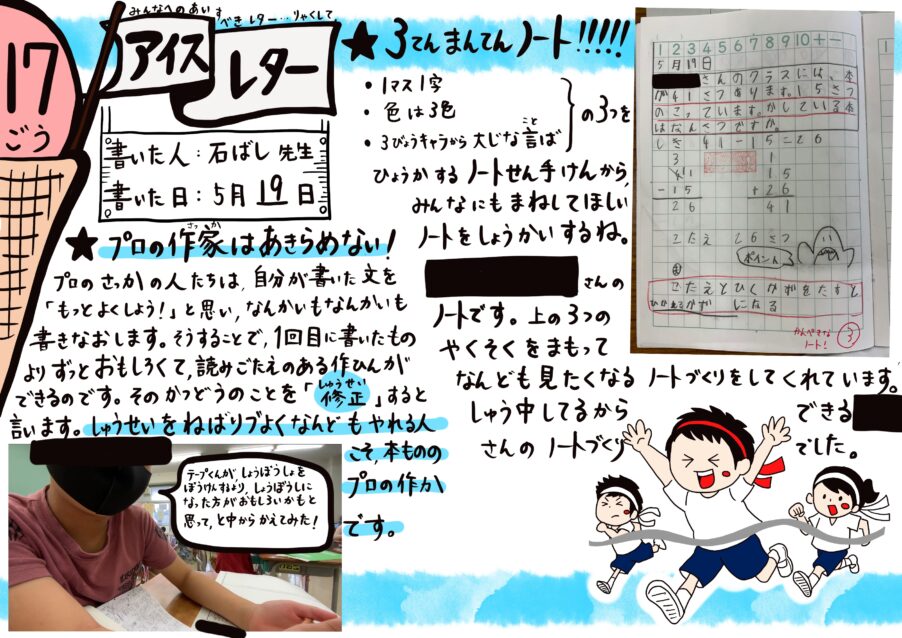 17
ごう
みんなへのあいす
べきレター…りゃくして
アイス
レター
書いた人：石ばし先生
書いた日：5月19日
★プロの作家はあきらめない！
さっか
プロのさっかの人たちは、自分が書いた文を
「もっとよくしよう！」と思い、なんかいもなんかいも
書きなおします。そうすることで、1回目に書いたもの
よりずっとおもしろくて、読みごたえのある作ひんが
できるのです。そのかつどうのことを「修正」すると
しゅうせい
言います。しゅうせいをねばりづよくなんどもやれる人
こそ、本ものの
プロの作か
です。
テープくんが、しょうぼうしょを
ぼうけんするより、しょうぼうしに
なった方がおもしろいかもと
思って、と中からかえてみた！
★3てんまんてんノート!!!!!
・1マス1字
・色は3色
・3びょうキャラから大じな言ば
こと
の3つを
ひょうかするノートせん手けんから、
みんなにもまねしてほしい
ノートをしょうかいするね。
さんの
ノートです。上の3つの
やくそくをまもって
なんども見たくなるノートづくりをしてくれています。
しゅう中してるからできる
さんのノートづくりでした。
1 2 3 4 5 6 7 8 9 10 + −
5月19日
さんのクラスには、本
が41さつあります。15さつ
のこっています。かしている本
はなんさつですか。
しき 41−15=26
3 1
41 15
−15 +26
26 41
こたえ 26さつ
ポイント
こたえとひくかずをたすと
ひかれるかずになる
かんぺきな
ノート！
3